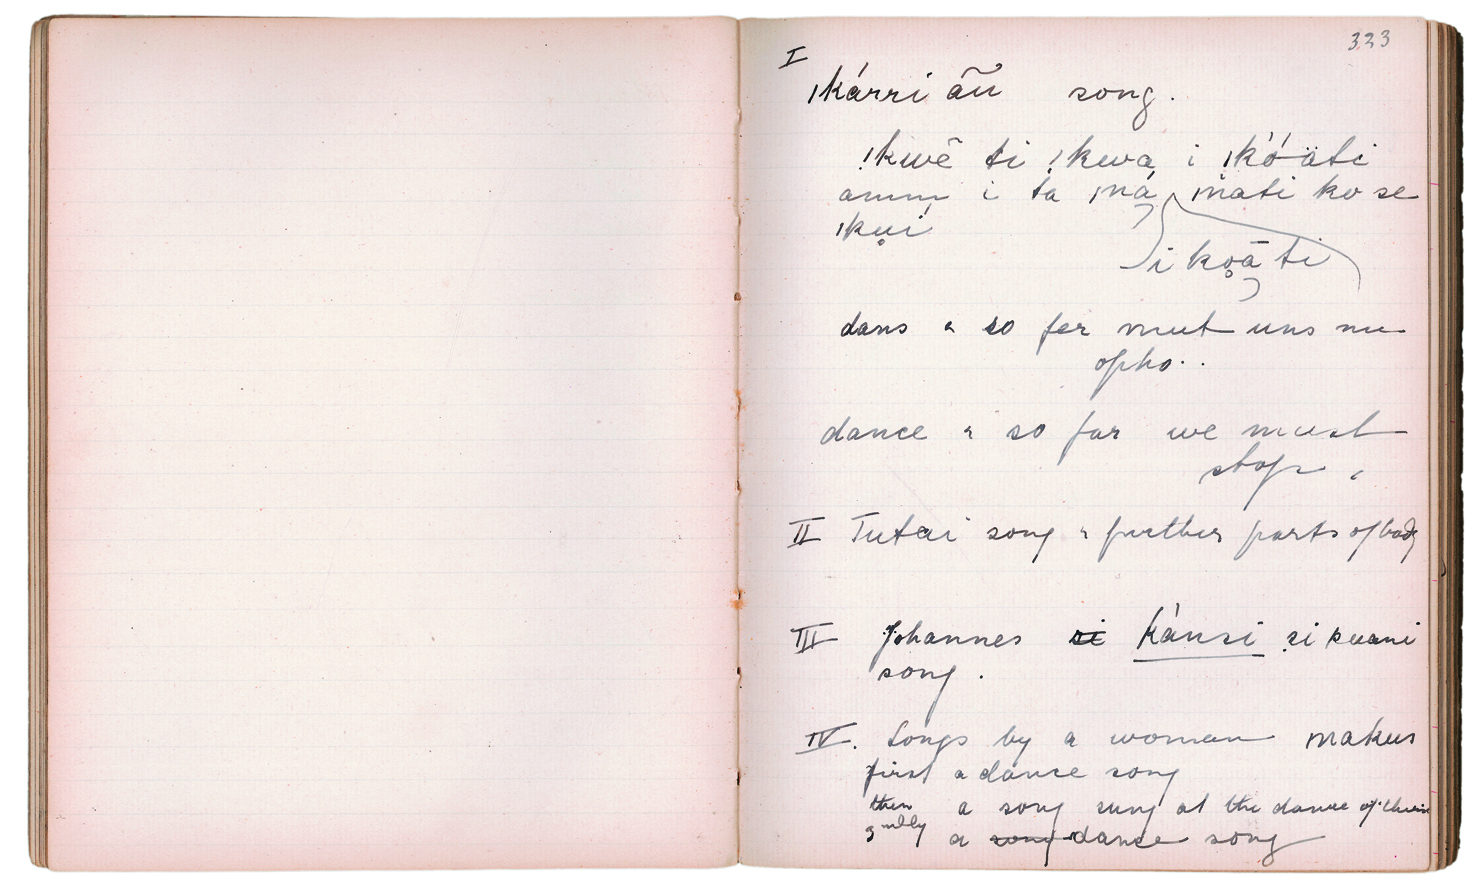 323
I
ǀkárri ãũ song.
ǃkwē ti ǃkwa i ǀkʼóäti
amm i ta ǀná ǀnati ko se
ǀkụí
i ko̥ā ti
dans & so fer mut uns nu
opho..
dance & so far we must
stop.
II Tutai song & further parts of body
III Johannes si kʼánsi si kwani
song.
IV. Songs by a woman ǀnakus
first a dance song
then a song sung at the dance of their
3rdly a song dance song